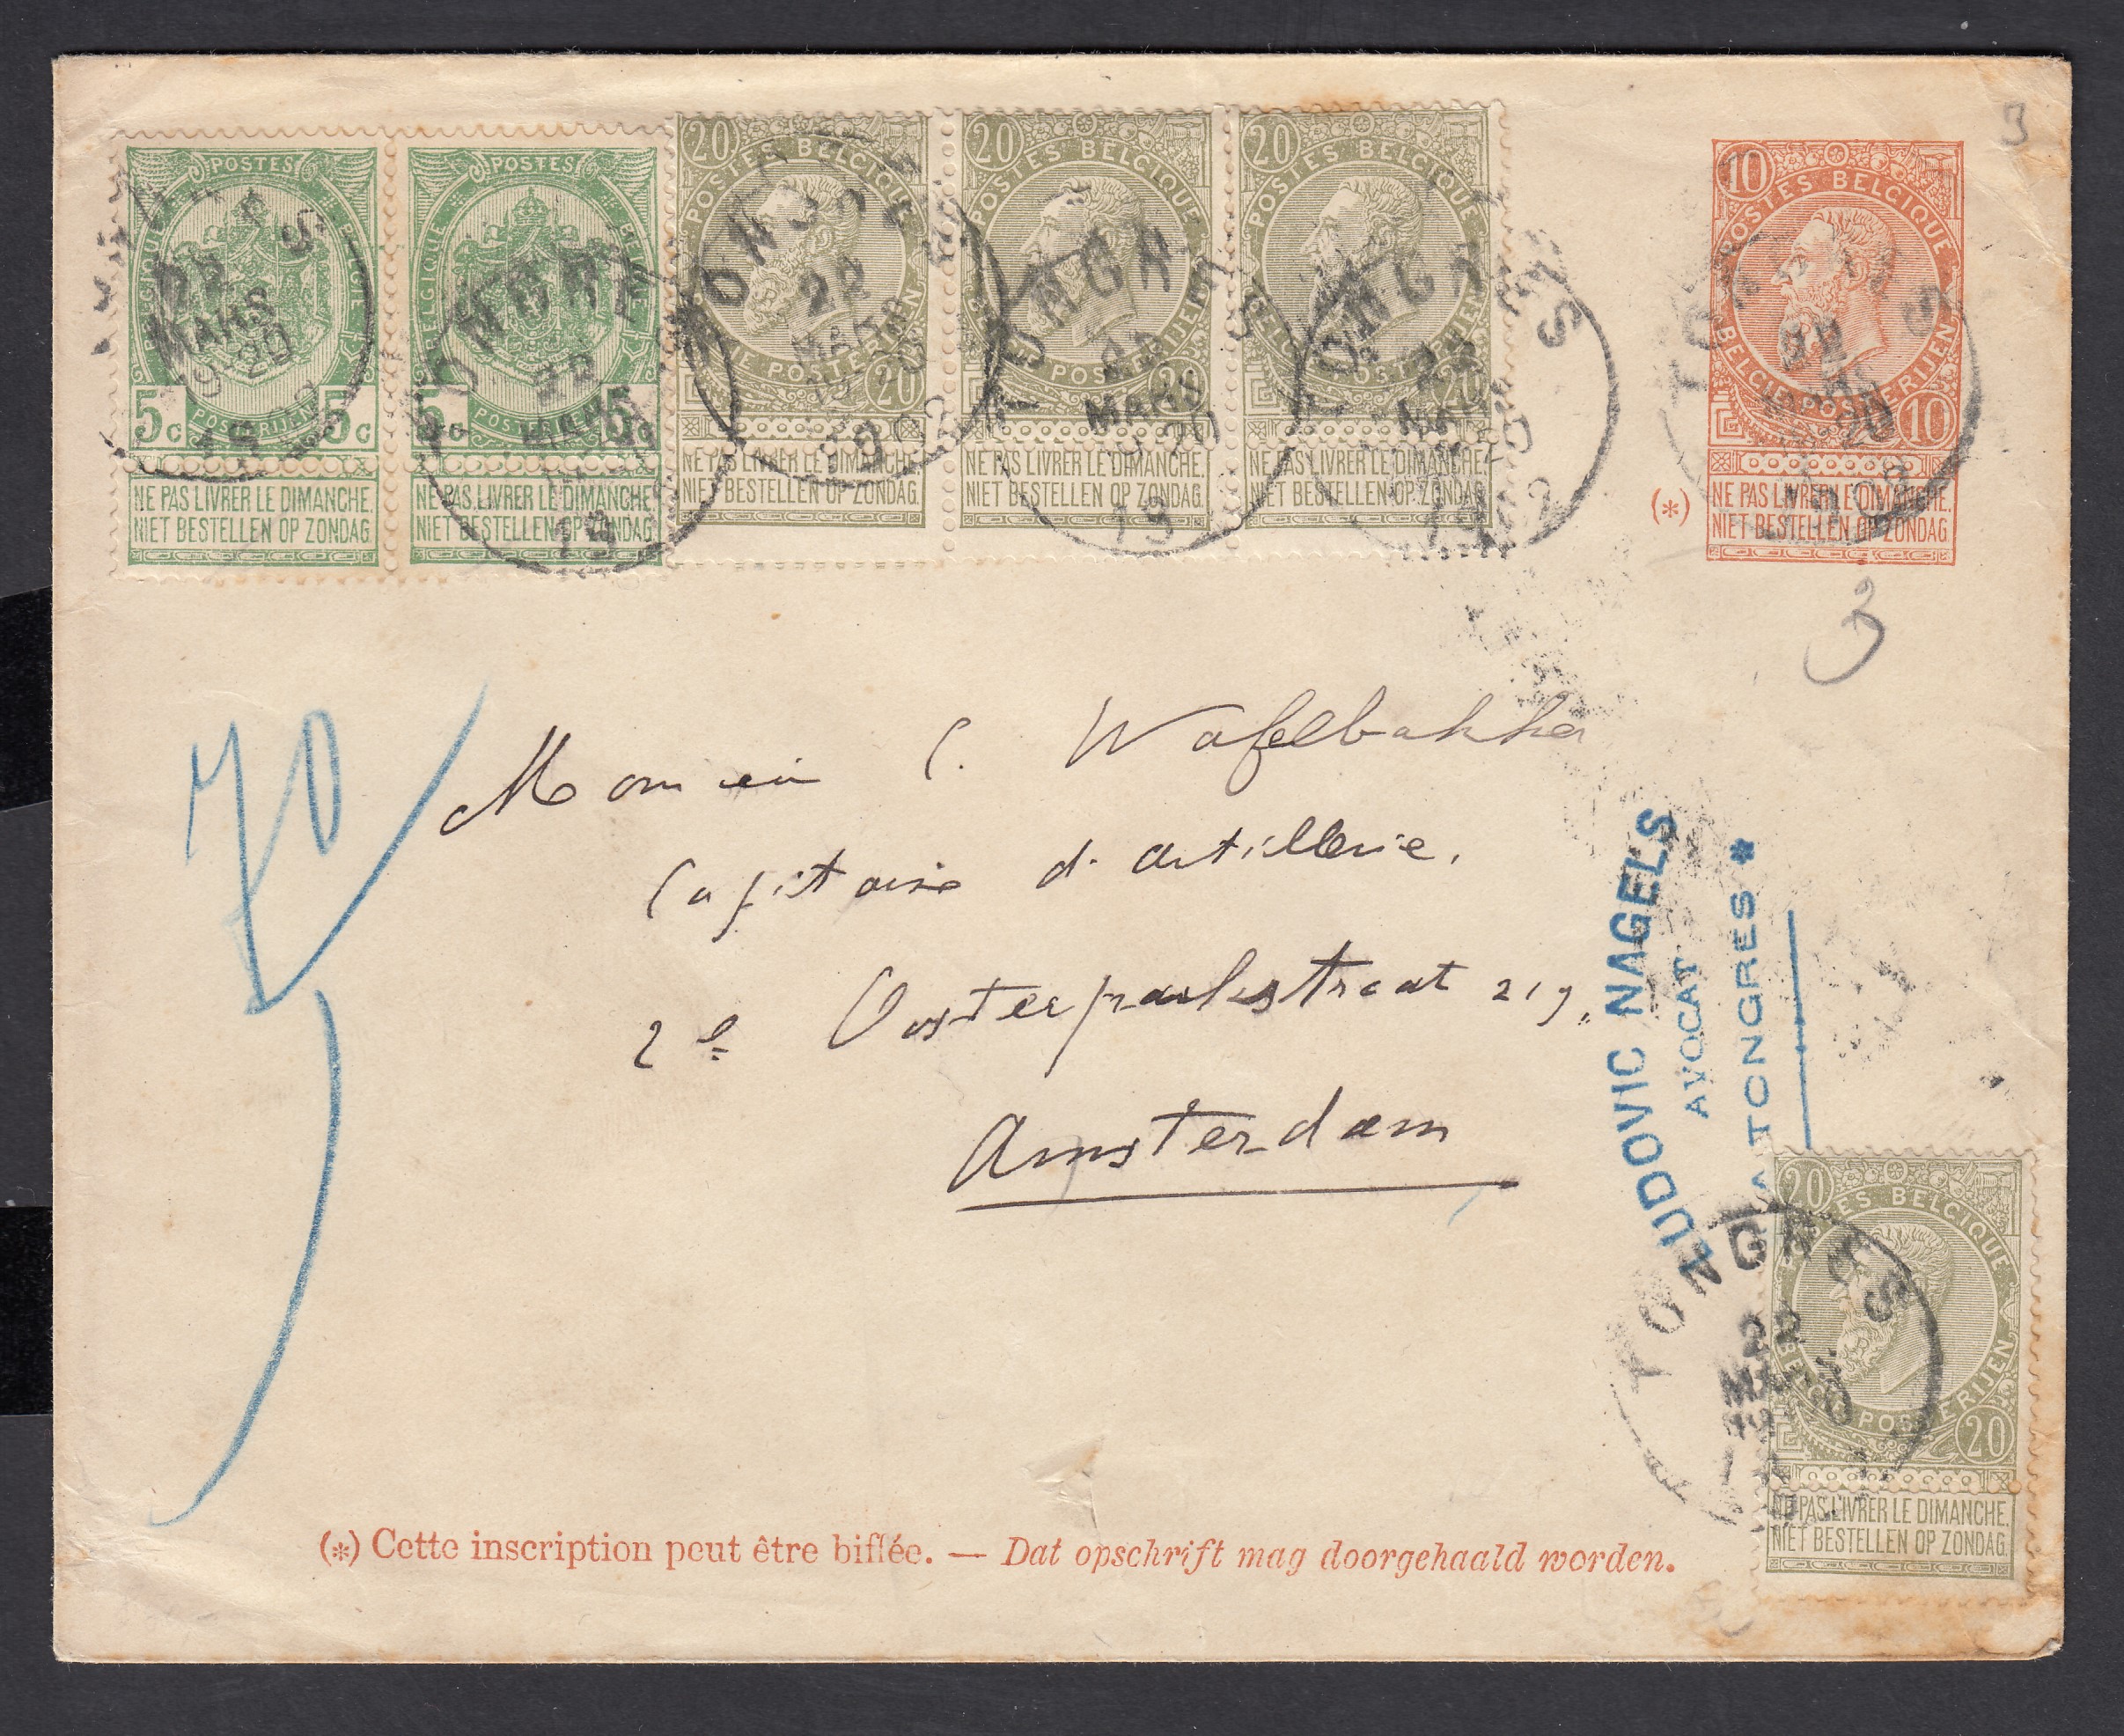 POSTES
BELGIQUE BELGIË
5c 5c
POSTERIJEN
NE PAS LIVRER LE DIMANCHE.
NIET BESTELLEN OP ZONDAG.
POSTES
BELGIQUE BELGIË
5c 5c
POSTERIJEN
NE PAS LIVRER LE DIMANCHE.
NIET BESTELLEN OP ZONDAG.
20
POSTES BELGIQUE
BELGIE POSTERIJEN
20
NE PAS LIVRER LE DIMANCHE.
NIET BESTELLEN OP ZONDAG.
20
POSTES BELGIQUE
BELGIE POSTERIJEN
20
NE PAS LIVRER LE DIMANCHE.
NIET BESTELLEN OP ZONDAG.
20
POSTES BELGIQUE
BELGIE POSTERIJEN
20
NE PAS LIVRER LE DIMANCHE.
NIET BESTELLEN OP ZONDAG.
10
POSTES BELGIQUE
BELGIE POSTERIJEN
10
(*) NE PAS LIVRER LE DIMANCHE.
NIET BESTELLEN OP ZONDAG.
TONGRES
22
MARS
3
3
70
C. Wafelbakker
Capitaine d'artillerie.
2e Oosterparkstraat 219.
Amsterdam
LUDOVIC NAGELS
AVOCAT
TONGRES *
20
POSTES BELGIQUE
BELGIE POSTERIJEN
20
NE PAS LIVRER LE DIMANCHE.
NIET BESTELLEN OP ZONDAG.
TONGRES
22
(*) Cette inscription peut être biffée. — Dat opschrift mag doorgehaald worden.